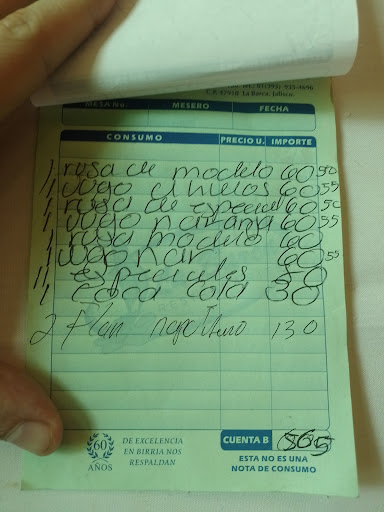 C.P. 47910 La Barca, Jalisco.
MESA No. MESERO FECHA
CONSUMO PRECIO U. IMPORTE
1 rusa de modelo 60 50
1 Jugo 60 55
1 rusa de especial 60 50
1 Jugo naranja 60 55
1 rusa modelo 60
1 Jugo nar 60 55
11 especiales 50
1 Coca Cola 30
2 flan napolitano 130
60 AÑOS
DE EXCELENCIA
EN BIRRIA NOS
RESPALDAN
CUENTA B 565
ESTA NO ES UNA
NOTA DE CONSUMO